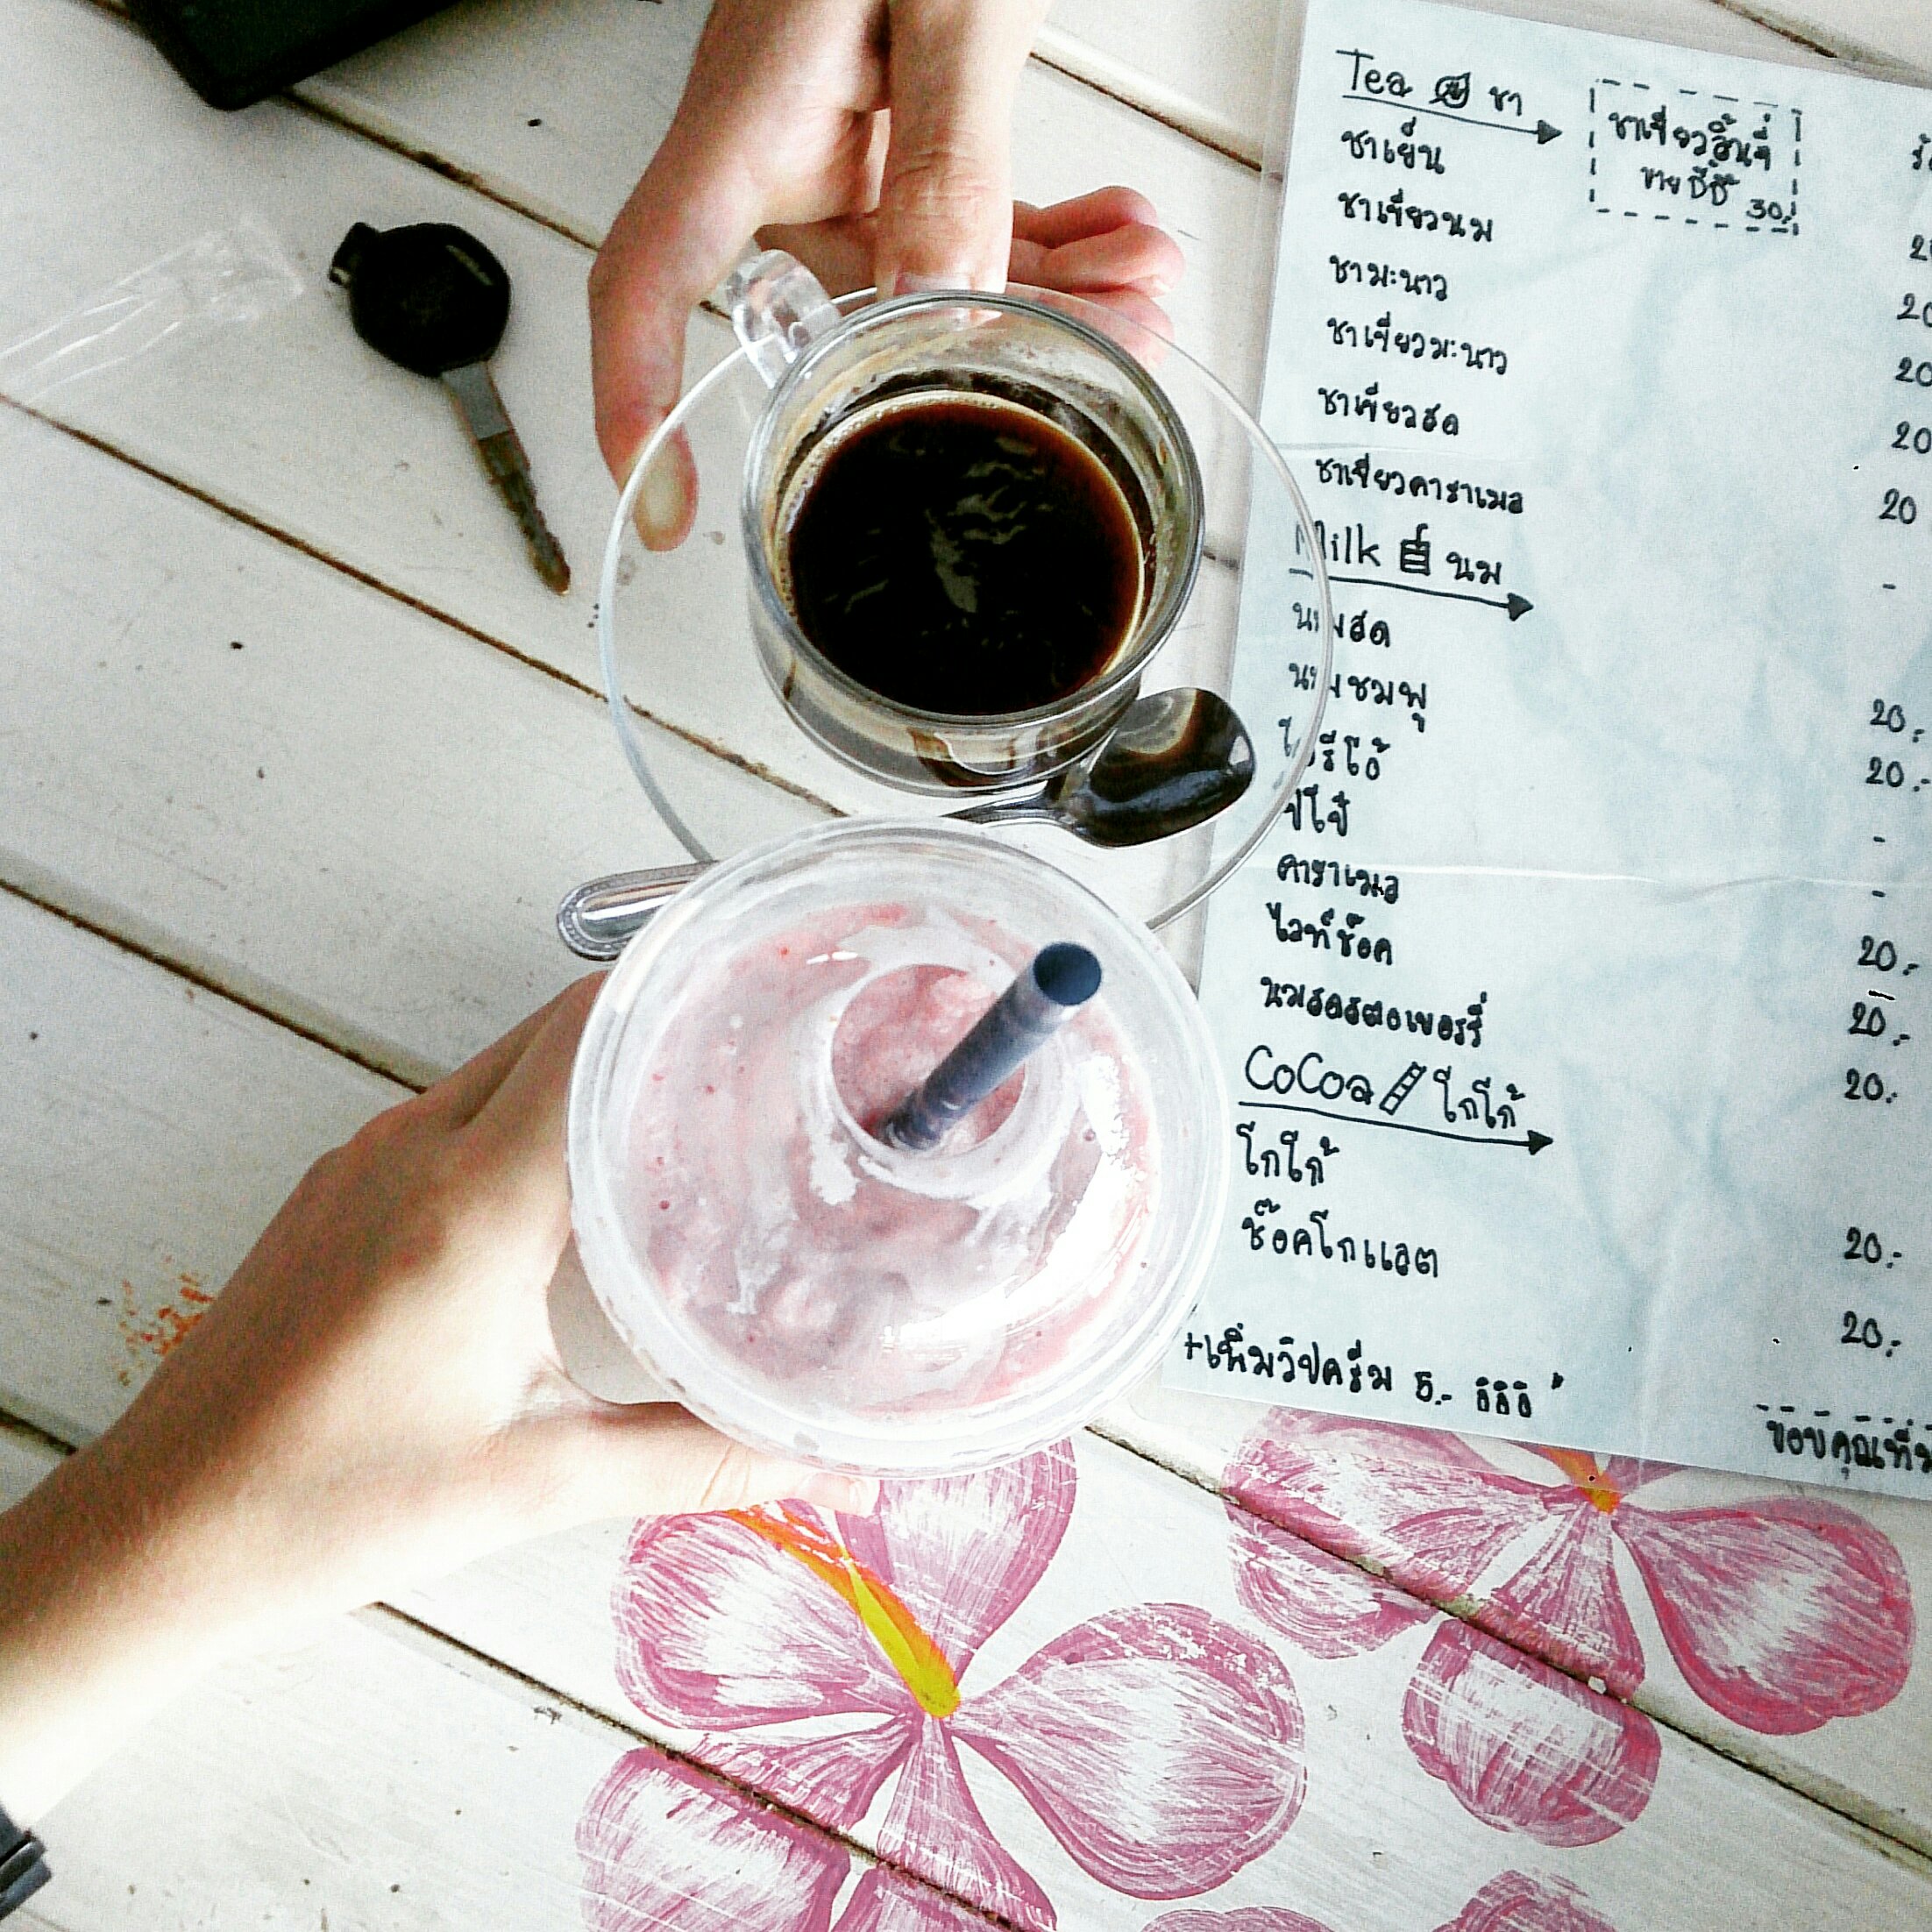 Tea ชา
ชาเขียวลิ้นจี่
30.-
ชาเย็น
ชาเขียวนม
ชามะนาว 20
ชาเขียวมะนาว 20
ชาเขียวสด 20
ชาเขียวคาราเมล 20
Milk นม -
นมสด 20.-
นมชมพู 20.-
โอรีโอ้ -
ปีโป้ -
คาราเมล 20.-
ไวท์ช๊อค 20.-
นมสดสตอเบอร์รี่ 20.-
CoCoa โกโก้
โกโก้ 20.-
ช๊อคโกแลต 20.-
+เพิ่มวิปครีม 5.- อิอิอิ
ขอบคุณที่